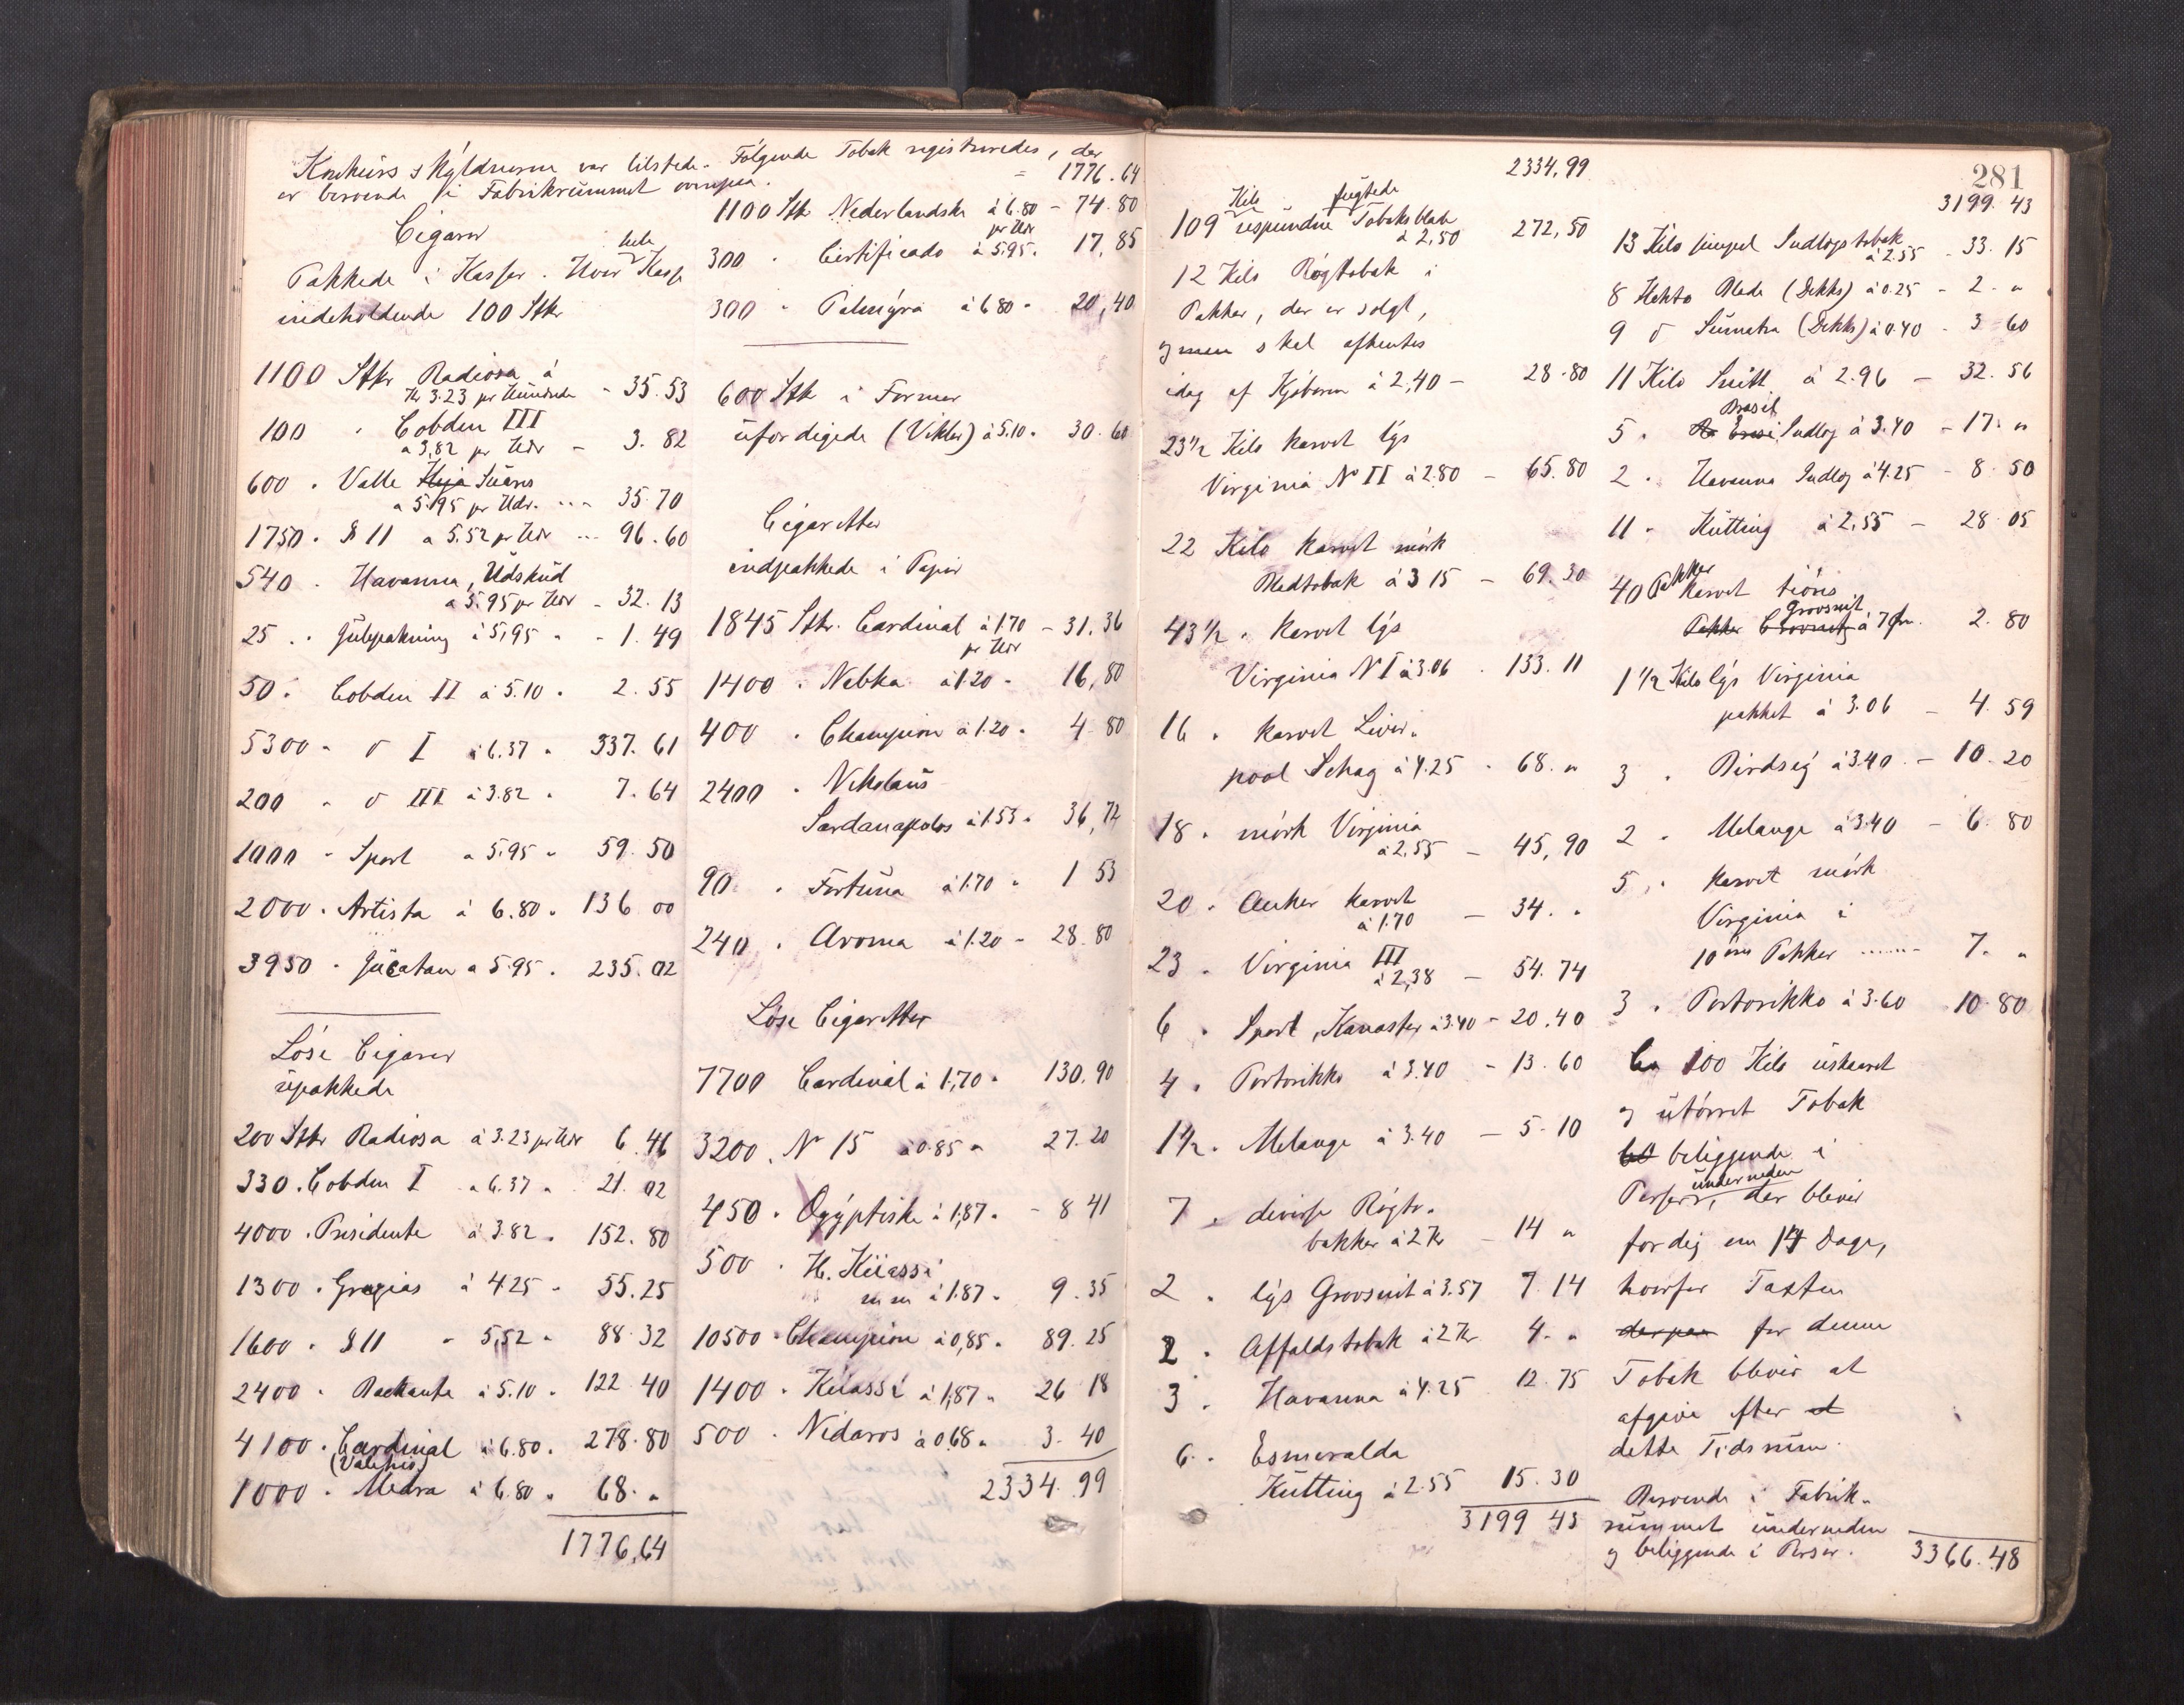 Konkurs skyldnerne var tilstede. Følgende Tobak registreredes, der
er beroende i Fabrikrummet ovenpaa.
Cigarer
Pakkede i Kasser. Hver hele Kasse
indeholdende 100 Stkr
1100 Stkr Radiosa à
Kr 3.23 pr Hundrede - 35.53
100 " Cobden III
a 3,82 pr Hdr - 3.82
600 " Valle Hija Suares
a 5.95 pr Hdr. --- 35.70
1750 " § 11 a 5.52 pr Hdr --- 96.60
540 " Havanna, Udskud
a 5.95 pr Hdr - 32.13
25 " Julepakning à 5,95 " - 1.49
50 " Cobden II à 5.10 " 2.55
5300 " do I à 6.37 " 337.61
200 " do III à 3.82 " 7.64
1000 " Sport a 5.95 " 59.50
2000 " Artista à 6.80 " 136 00
3950 " Jucatan a 5.95 " 235.02
Løse Cigarer
upakkede
200 Stkr Radiosa à 3.23 pr Hdr 6.46
330 " Cobden I a 6.37 " 21.02
4000 " Presidente à 3.82 " 152.80
1300 " Gragias à 4.25 " 55.25
1600 " § 11 " 5,52 " 88.32
2400 " Backante à 5.10 " 122 40
4100 " Cardinal à 6.80 " 278.80
1000 " Medra à 6.80 " 68. "
1776,64
- 1776.64
1100 Stk Nederlandske à 6.80 - 74.80
pr Hdr
300 " Certificado à 5.95 " 17,85
300 " Palmyra à 6 80 " 20,40
600 Stk i Former
ufærdigede (Vikler) à 5.10 " 30.60
Cigaretter
indpakkede i Papir
1845 Stkr. Cardinal à 1.70 - 31.36
pr Hdr
1400 " Nebka à 1.20 " 16,80
400 " Champion à 1.20 " 4 80
2400 " Nikolaus
Sardanapolos à 1.53 " 36,72
90 " Fortuna à 1.70 " 1 53
240 " Aroma à 1.20 - 28.80
Løse Cigaretter
7700 Cardinal à 1,70 " 130.90
3200 " No 15 à 0.85 " 27.20
450 " Ægyptiske à 1,87 " - 8 41
500 " H. Kiiassi
m m à 1.87 " 9.35
10500 " Champion à 0,85 " 89.25
1400 " Kiiassi à 1,87 " 26 18
500 " Nidaros à 0,68 " 3.40
2334.99
2334,99
Kilo fugtede
109 uspundne Tobaksblade
à 2,50 272,50
12 Kilo Røgtobak i
Pakker, der er solgt,
og som skal afhentes
idag af Kjøberen à 2,40 - 28.80
23 1/2 Kilo karvet lys
Virginia No II à 2.80 - 65.80
22 Kilo karvet mørk
Bladtobak à 3 15 - 69.30
43 1/2 " karvet lys
Virginia No I à 3.06 " 133.11
16 " karvet Liver-
pool Schag à 4.25 " 68. "
18 " mørk Virginia
à 2.55 - 45,90
20 " Anker karvet
à 1.70 - 34. "
23 " Virginia III
à 2,38 - 54.74
6 " Sport, Kanaster à 3.40 - 20.40
4 " Portorikko à 3.40 - 13.60
1 1/2 " Melange à 3.40 - 5.10
7 " diverse Røgto-
bakker à 2 Kr - 14 "
2 " lys Grovsnit à 3.57 7.14
2 " Affaldstobak à 2 Kr 4. "
3 " Havanna à 4.25 12.75
6 " Esmeralda
Kutting à 2.55 15.30
3199 43
281
3199.43
13 Kilo simpel Indlægstobak
à 2.55 - 33.15
8 Hekto Blade (Dekks) à 0.25 - 2. "
9 do Sumatra (Dekks) à 0.40 - 3.60
11 Kilo Snitt à 2.96 - 32.56
5 " Brasil Indlæg à 3.40 - 17. "
2 " Havanna Indlæg à 4.25 - 8.50
11 " Kutting à 2,55 - 28.05
40 Pakker karvet tiøres
Pakker Grovsnit à 7 Øre. 2.80
1 1/2 Kilo lys Virginia
pakket à 3.06 - 4.59
3 " Birdsey à 3.40 - 10.20
2 " Melange à 3.40 - 6.80
5 " karvet mørk
Virginia i
10 øres Pakker ------- 7. "
3 " Portorikko à 3.60 10.80
Ca 100 Kilo uskaaret
og utørret Tobak
beliggende i
Perser, underneden der bliver
færdig om 14 Dage,
hvorfor Taxten
derpaa for denne
Tobak bliver at
afgive efter et
dette Tidsrum.
Beroende i Fabrik-
rummet underneden
og beliggende i Perser. 3366.48